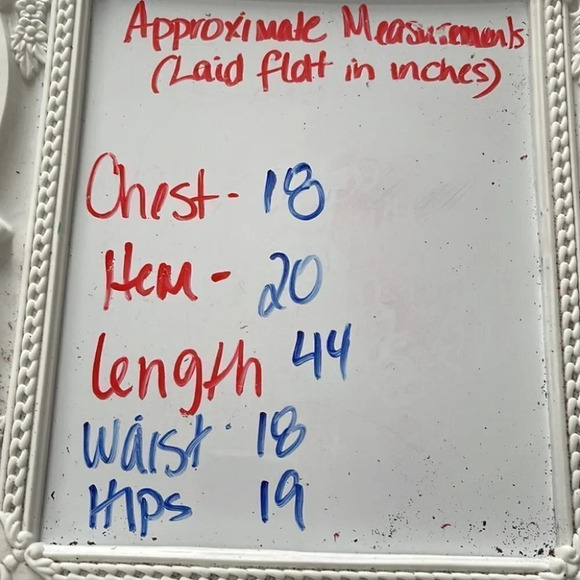 Approximate Measurements
(Laid flat in inches)
Chest - 18
Hem - 20
length 44
Waist - 18
Hips 19